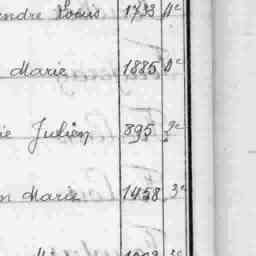 endre Louis 1733 4e
Marie 1885 4e
ie Julien 895 2e
n Marie 1458 3e
3e